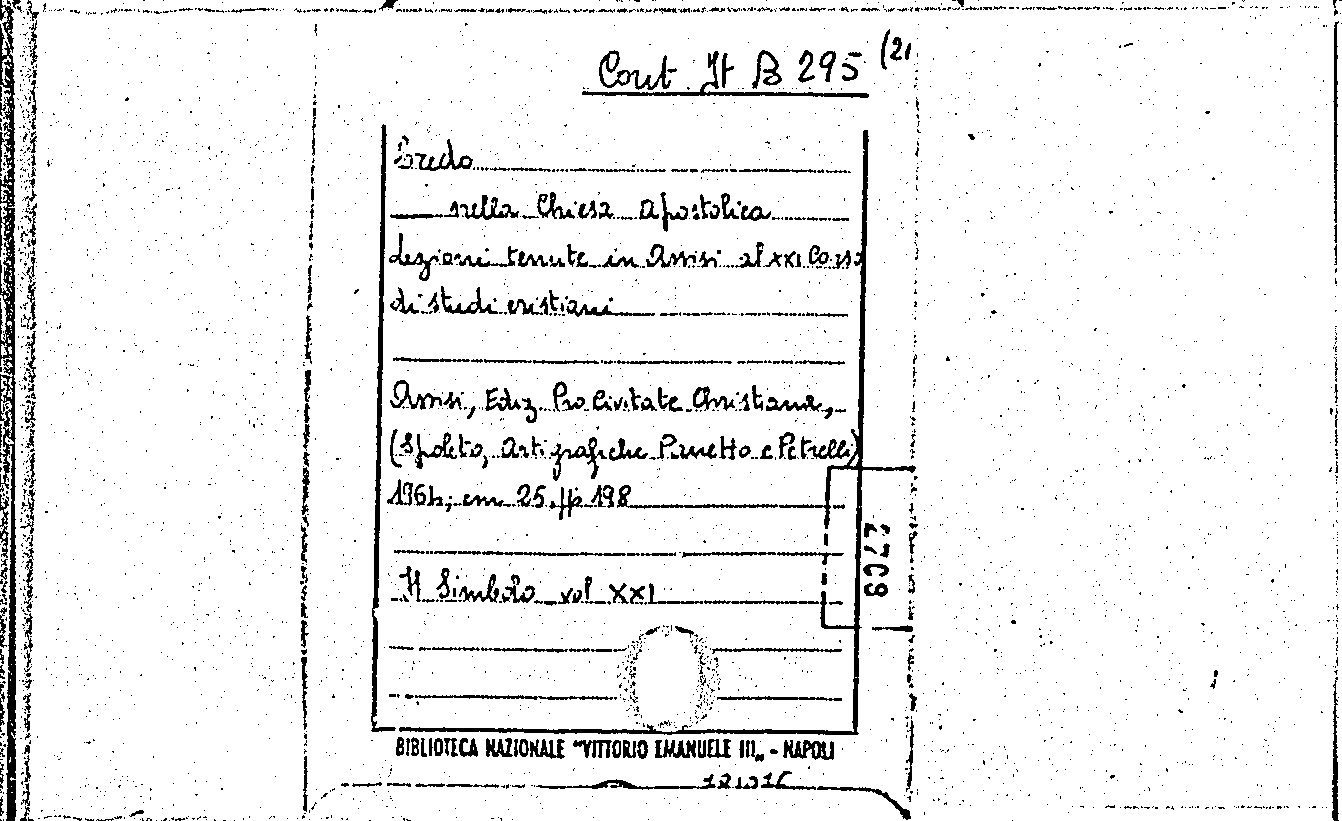 Cont It B 295 (21
Credo
nella Chiesa Apostolica
Lezioni tenute in Assisi al XXI Corso
di studi cristiani
Assisi, Ediz. Pro Civitate Christiana,
(Spoleto, Arti grafiche Panetto e Petrelli)
1964; cm 25. pp 198
2709
It Simbolo vol XXI
BIBLIOTECA NAZIONALE "VITTORIO EMANUELE III„ - NAPOLI